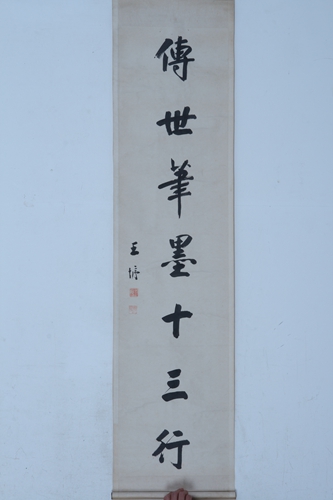 傳世筆墨十三行
王垿